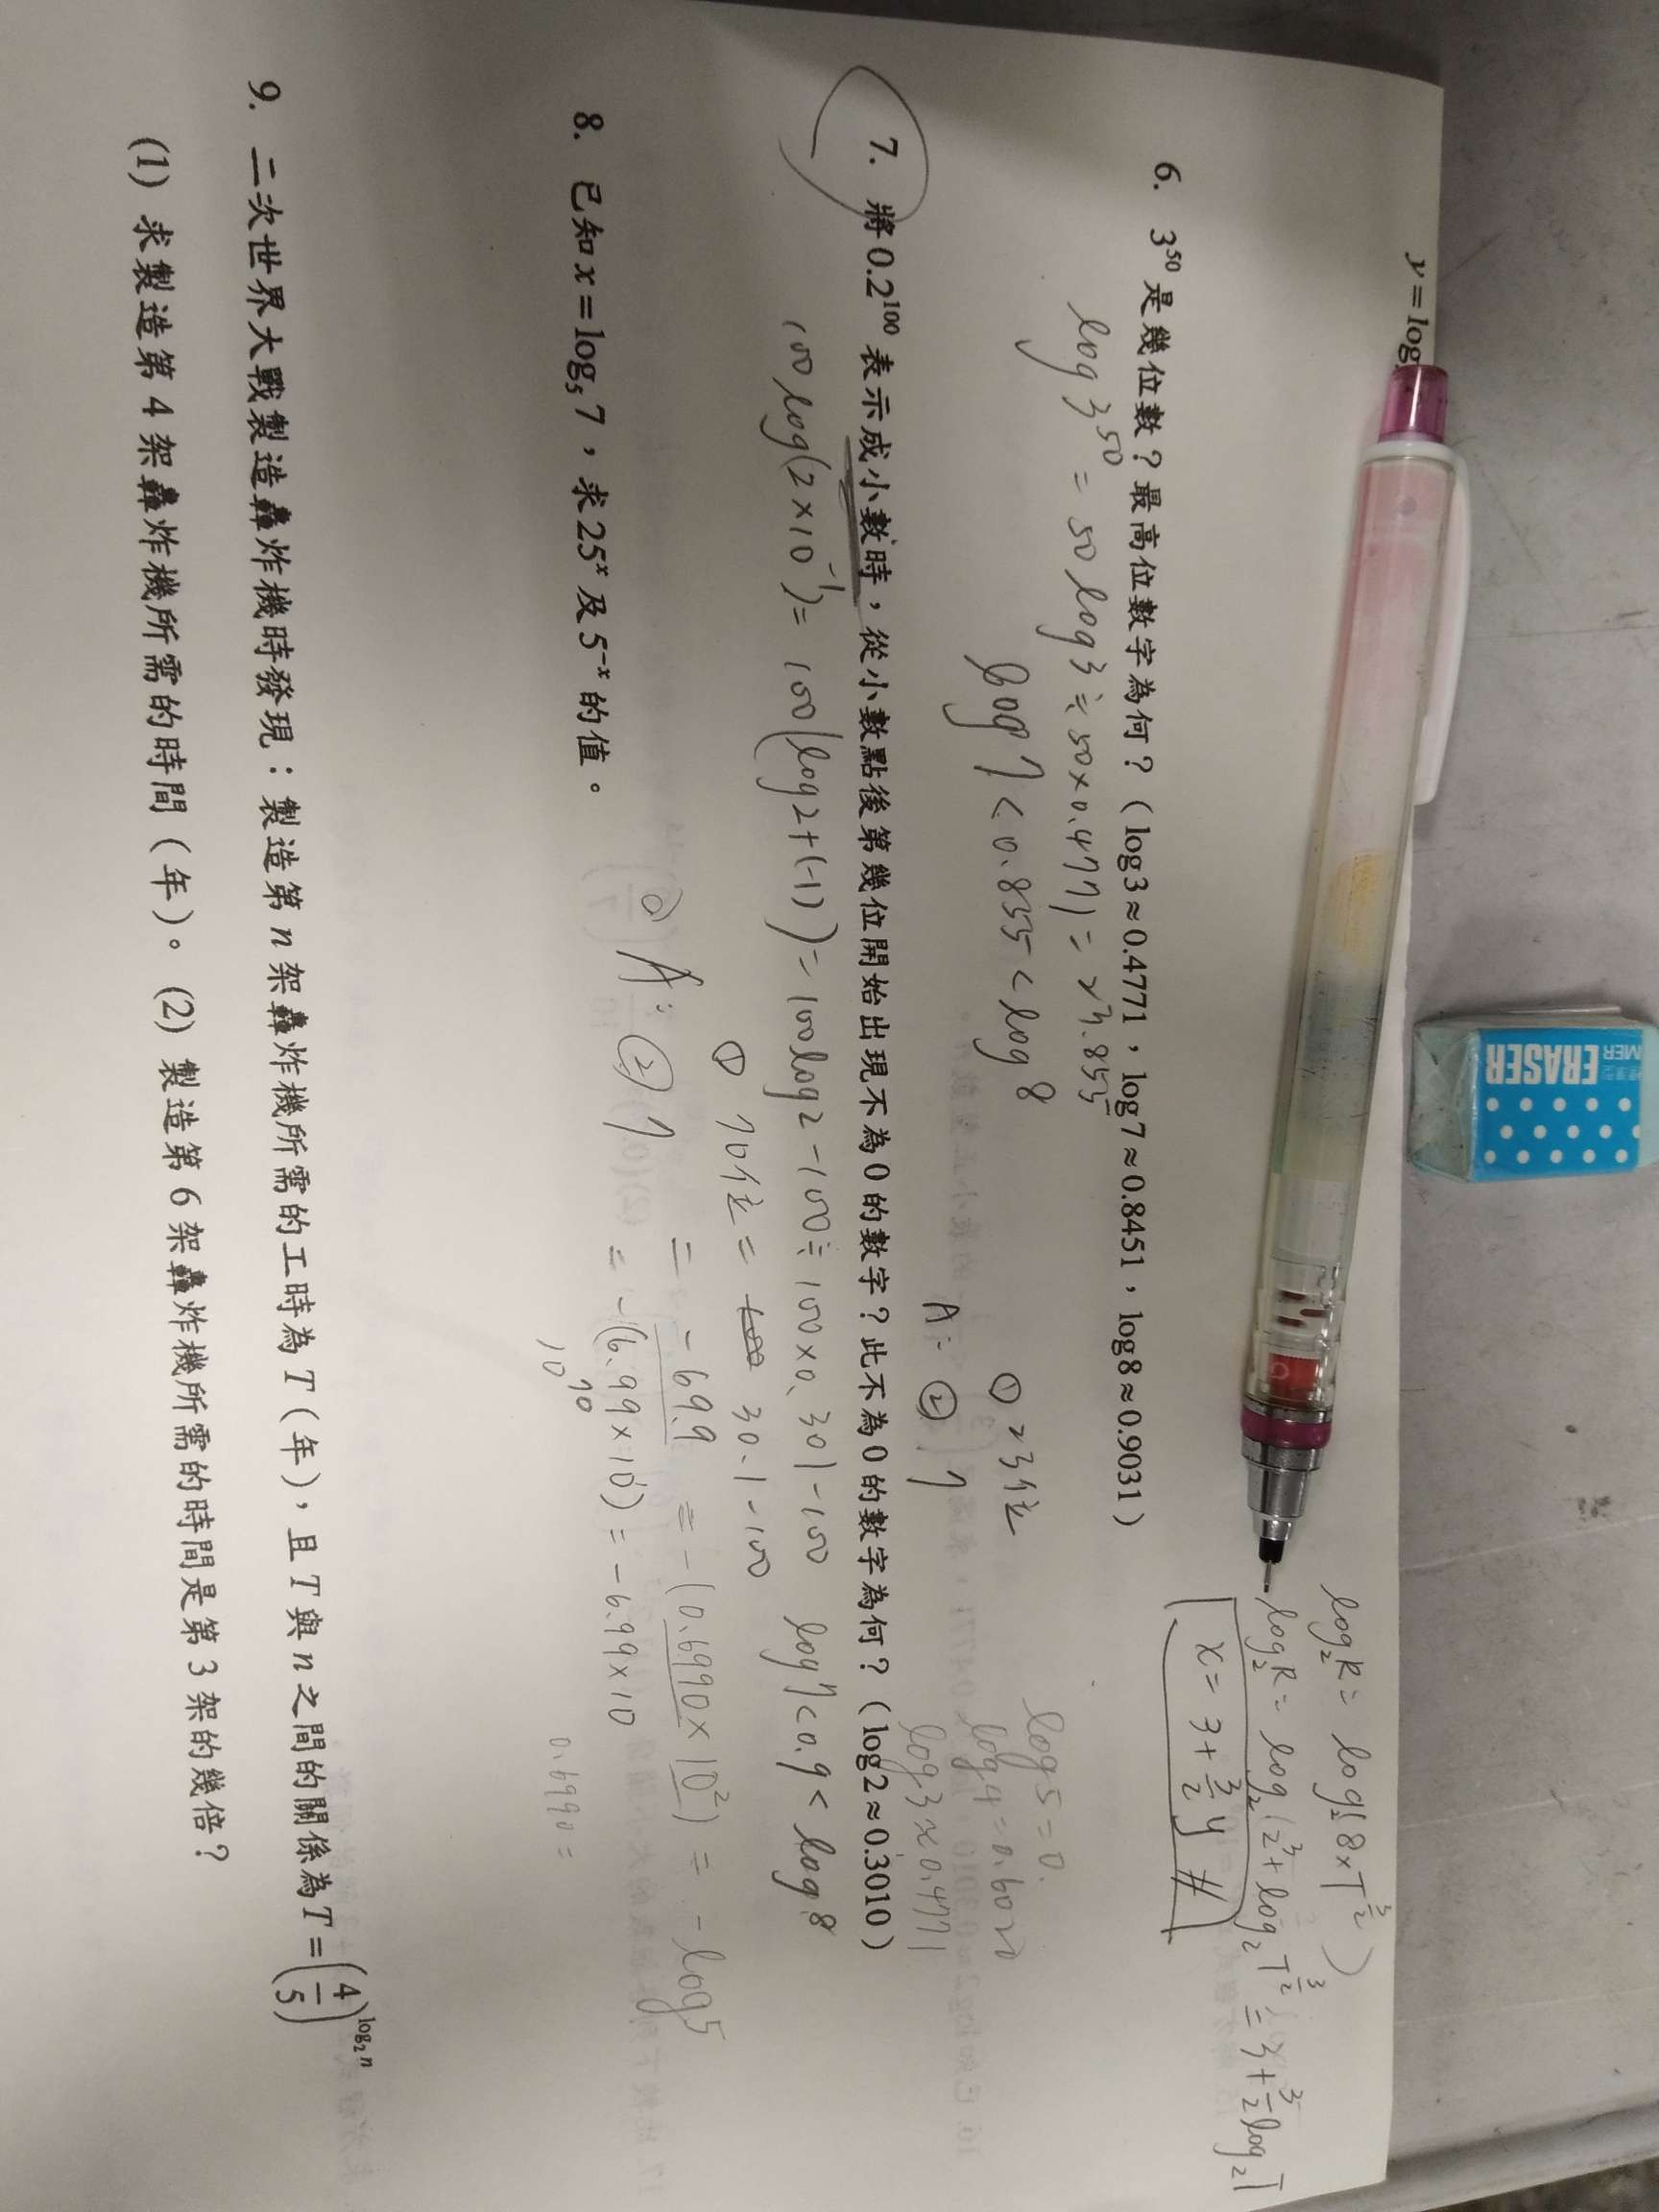 y=log
log₂R = log₂(8×T^{3/2})
log₂R = log₂(2³+log₂T^{3/2} = 3+\frac{3}{2}log₂T
x = 3+\frac{3}{2}y #
ERASER
6. 3⁵⁰ 是幾位數？最高位數字為何？（log3≈0.4771，log7≈0.8451，log8≈0.9031）
log 3⁵⁰ = 50 log 3 ≒ 50×0.4771 = 23.855
① 23位
log 7 < 0.855 < log 8
A: ② 7
log5=0.
log4=0.6020
log3≈0.4771
7. 將0.2¹⁰⁰ 表示成小數時，從小數點後第幾位開始出現不為0的數字？此不為0的數字為何？（log2≈0.3010）
100 log(2×10⁻¹) = 100(log2+(-1)) = 100log2-100 ≒ 100×0.301-100
log7<0.9<log8
① 70位 = 30.1-100
A: ② 7
= -69.9 = -(0.6990×10²) = -log5
= -(6.99×10¹) = -6.99×10
10⁷⁰
0.6990=
8. 已知x=log₅7，求25ˣ及5⁻ˣ的值。
9. 二次世界大戰製造轟炸機時發現：製造第n架轟炸機所需的工時為T（年），且T與n之間的關係為T=(\frac{4}{5})^{log₂n}
(1) 求製造第4架轟炸機所需的時間（年）。(2) 製造第6架轟炸機所需的時間是第3架的幾倍？